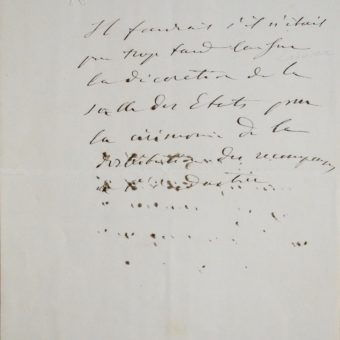 Il faudrait s'il n'était
pas trop tard
la décoration de la
salle des Etats pour
la cérémonie de la
distribution des récompenses